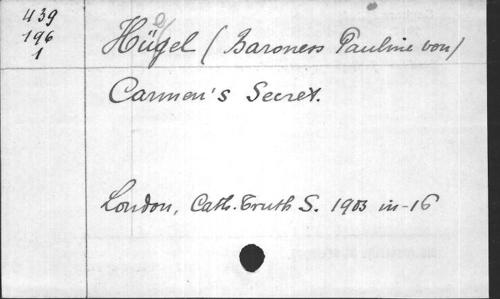 439
196
1
Hügel (Baroness Pauline von)
Carmen's Secret.
London, Cath. Truth S. 1903 in-16